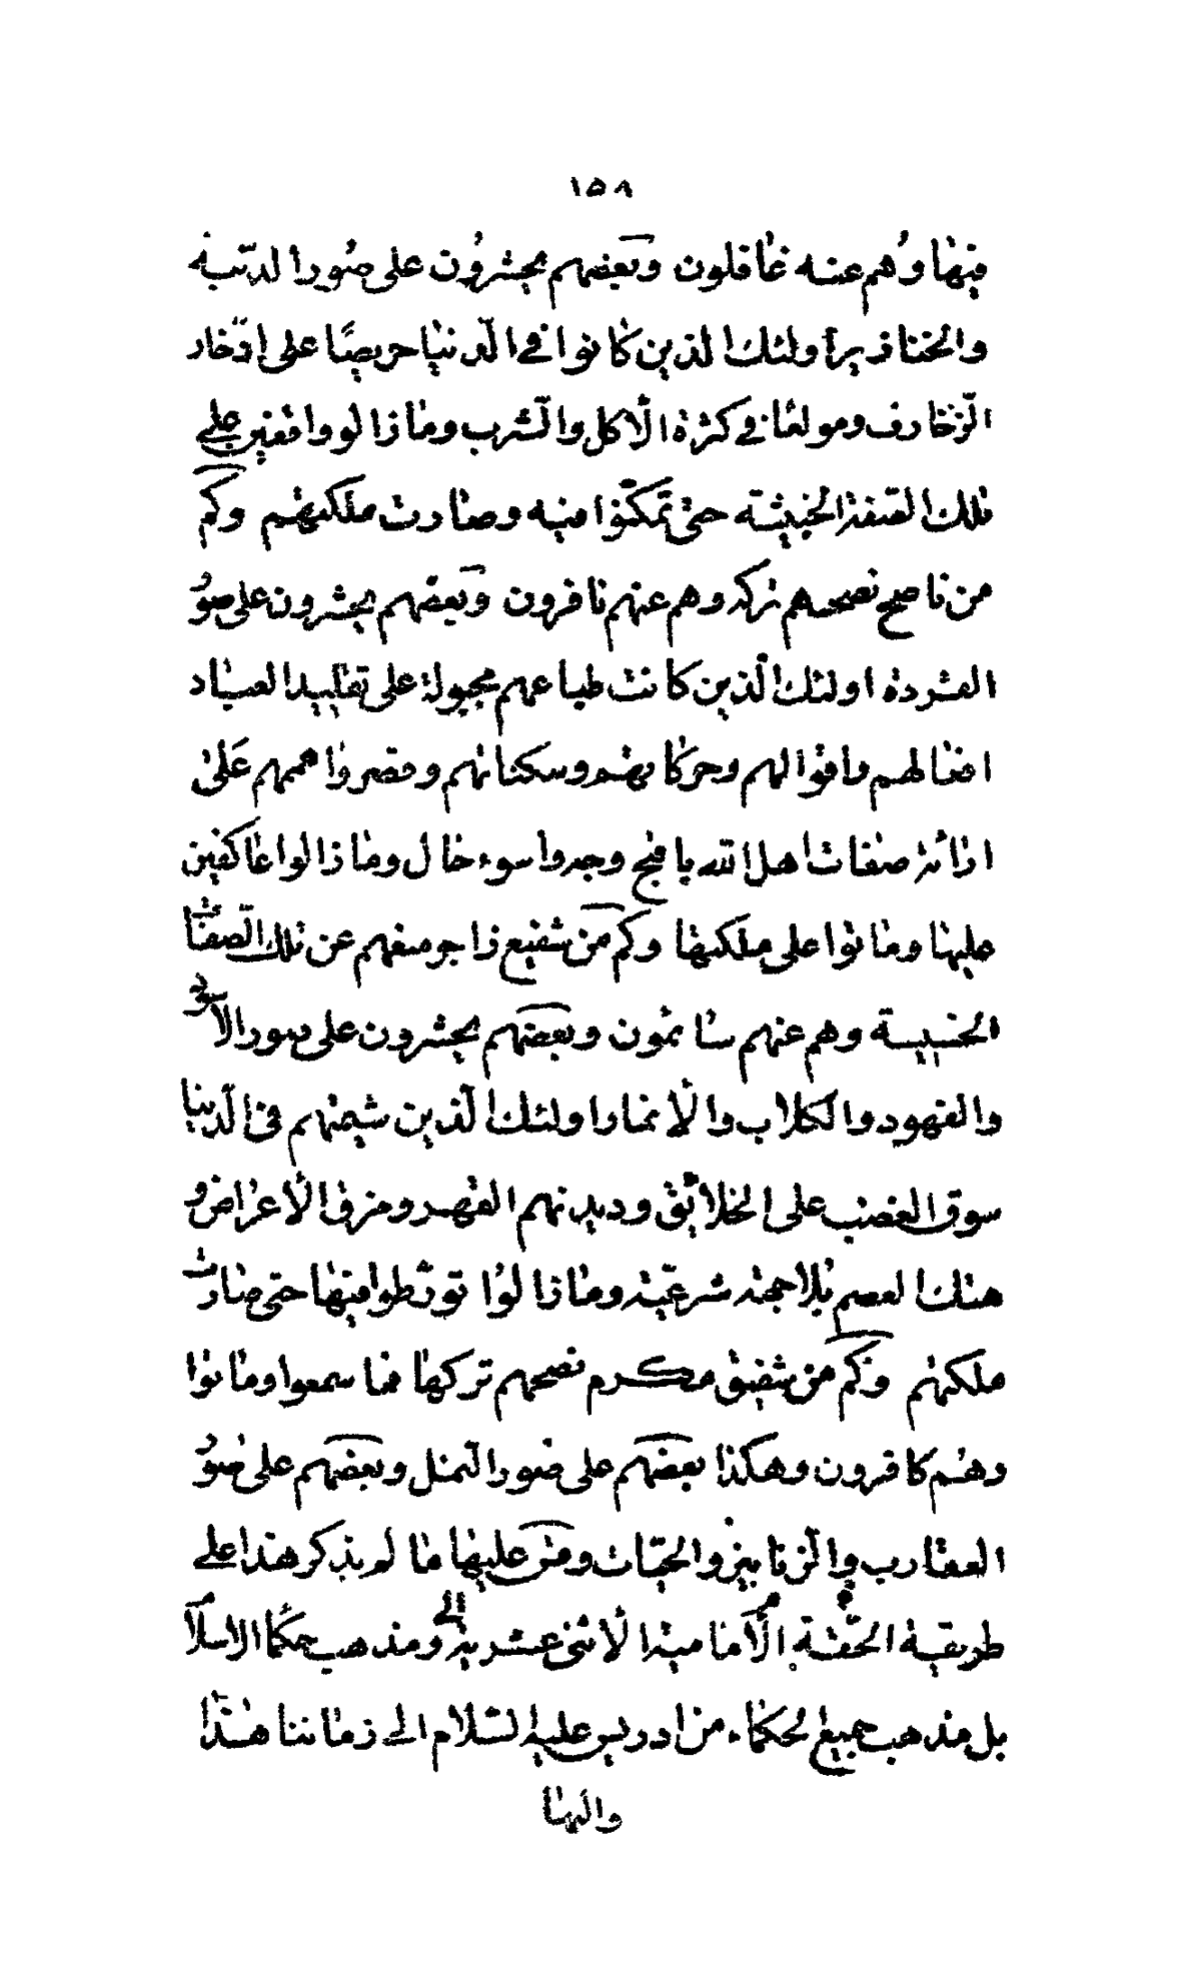 ١٥٨
فيها وهم عنه غافلون وبعضهم يحشرون على صورا لدّببه
والخنازير أولئك الذين كانوا في الدّنيا حريصًا على ادّخار
الزّخارف ومولعا في كثرة الأكل والشّرب وما زالو واقفين على
تلك الصّفة الخبيثة حتى تمكّنوا فيه وصارت ملكتهم وكم
من ناصح نصحهم تركه وهم عنهم نافرون وبعضهم يحشرون على صوُ
القردة اولئك الّذين كانت طباعهم مجبولة على تقليد العباد
افعالهم واقوالهم وحركاتهم وسكناتهم وقصروا هممهم على
ارائة صفات اهل الله باقبح وجه واسوء حال وما زالوا عاكفين
عليها وماتوا على ملكتها وكم من شفيع زاجر منعهم عن تلك الصّفات
الخسيسة وهم عنهم سائمون وبعضهم يحشرون على صور الأسود
والفهود والكلاب والأنمار اولئك الّذين شيمتهم في الدّنيا
سوق الغضب على الخلائق وديدنهم القهر وخرق الأعراض و
هتك العصم بلا حجة شرعيّة وما زالوا تورّطوا فيها حتى صارت
ملكتهم وكم من شفيق مكرم نصحهم تركها فما سمعوا وماتوا
وهم كافرون وهكذا بعضهم على صور النّمل وبعضهم على صوُ
العقارب والزّنابير والحيّات وقس عليها ما لم يذكر هذا على
طريقة الحقّة الأمامية الأثنى عشرية ومذهب حكماء الاسلام
بل مذهب جميع الحكماء من ادريس عليه السّلام الى زماننا هذا
والهنا